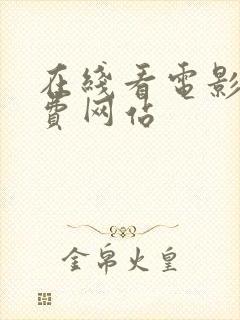 在綫看電影
費网佔
金帛火皇